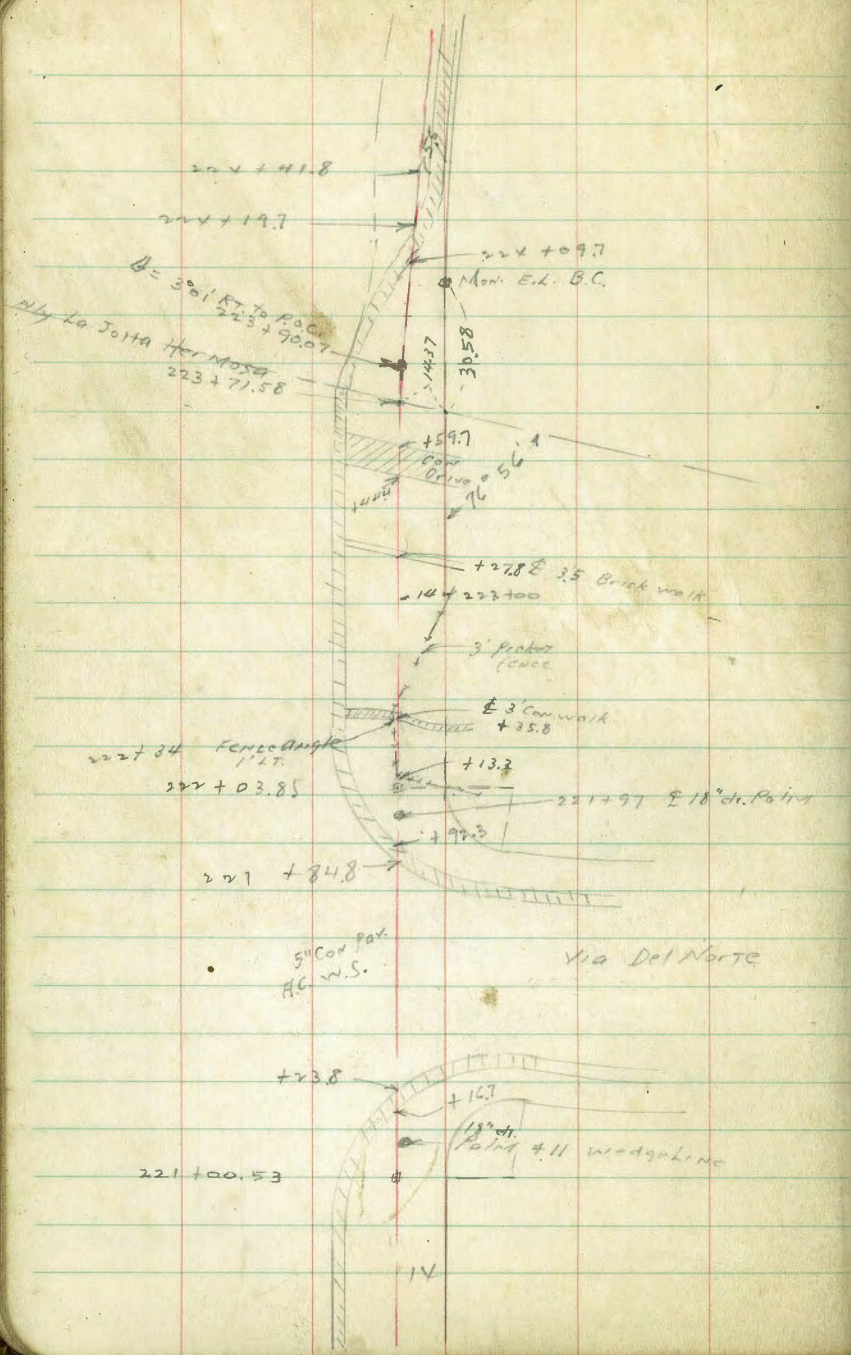 7.56
224 + 41.8
224 + 19.7
224 + 09.7
Mon. E.L. B.C.
Δ = 3°01' RT. to P.O.C.
223 + 90.07
Nly La Jolla Hermosa
223 + 71.58
14.37
30.58
+59.7
Con
Drive
76° 56'
+27.8 ℄ 3.5 Brick walk
14
223+00
3' Picket
fence
℄ 3' Con walk
+ 35.8
222+34 Fence Angle
1' LT.
+13.3
222 + 03.85
221+97 ℄ 18" dr. Palm
+92.3
221 +84.8
5" Con Pav.
A.C. W.S.
Via Del Norte
+23.8
+16.7
18" dr.
Palm +11 wedge Line
221 +00.53
14